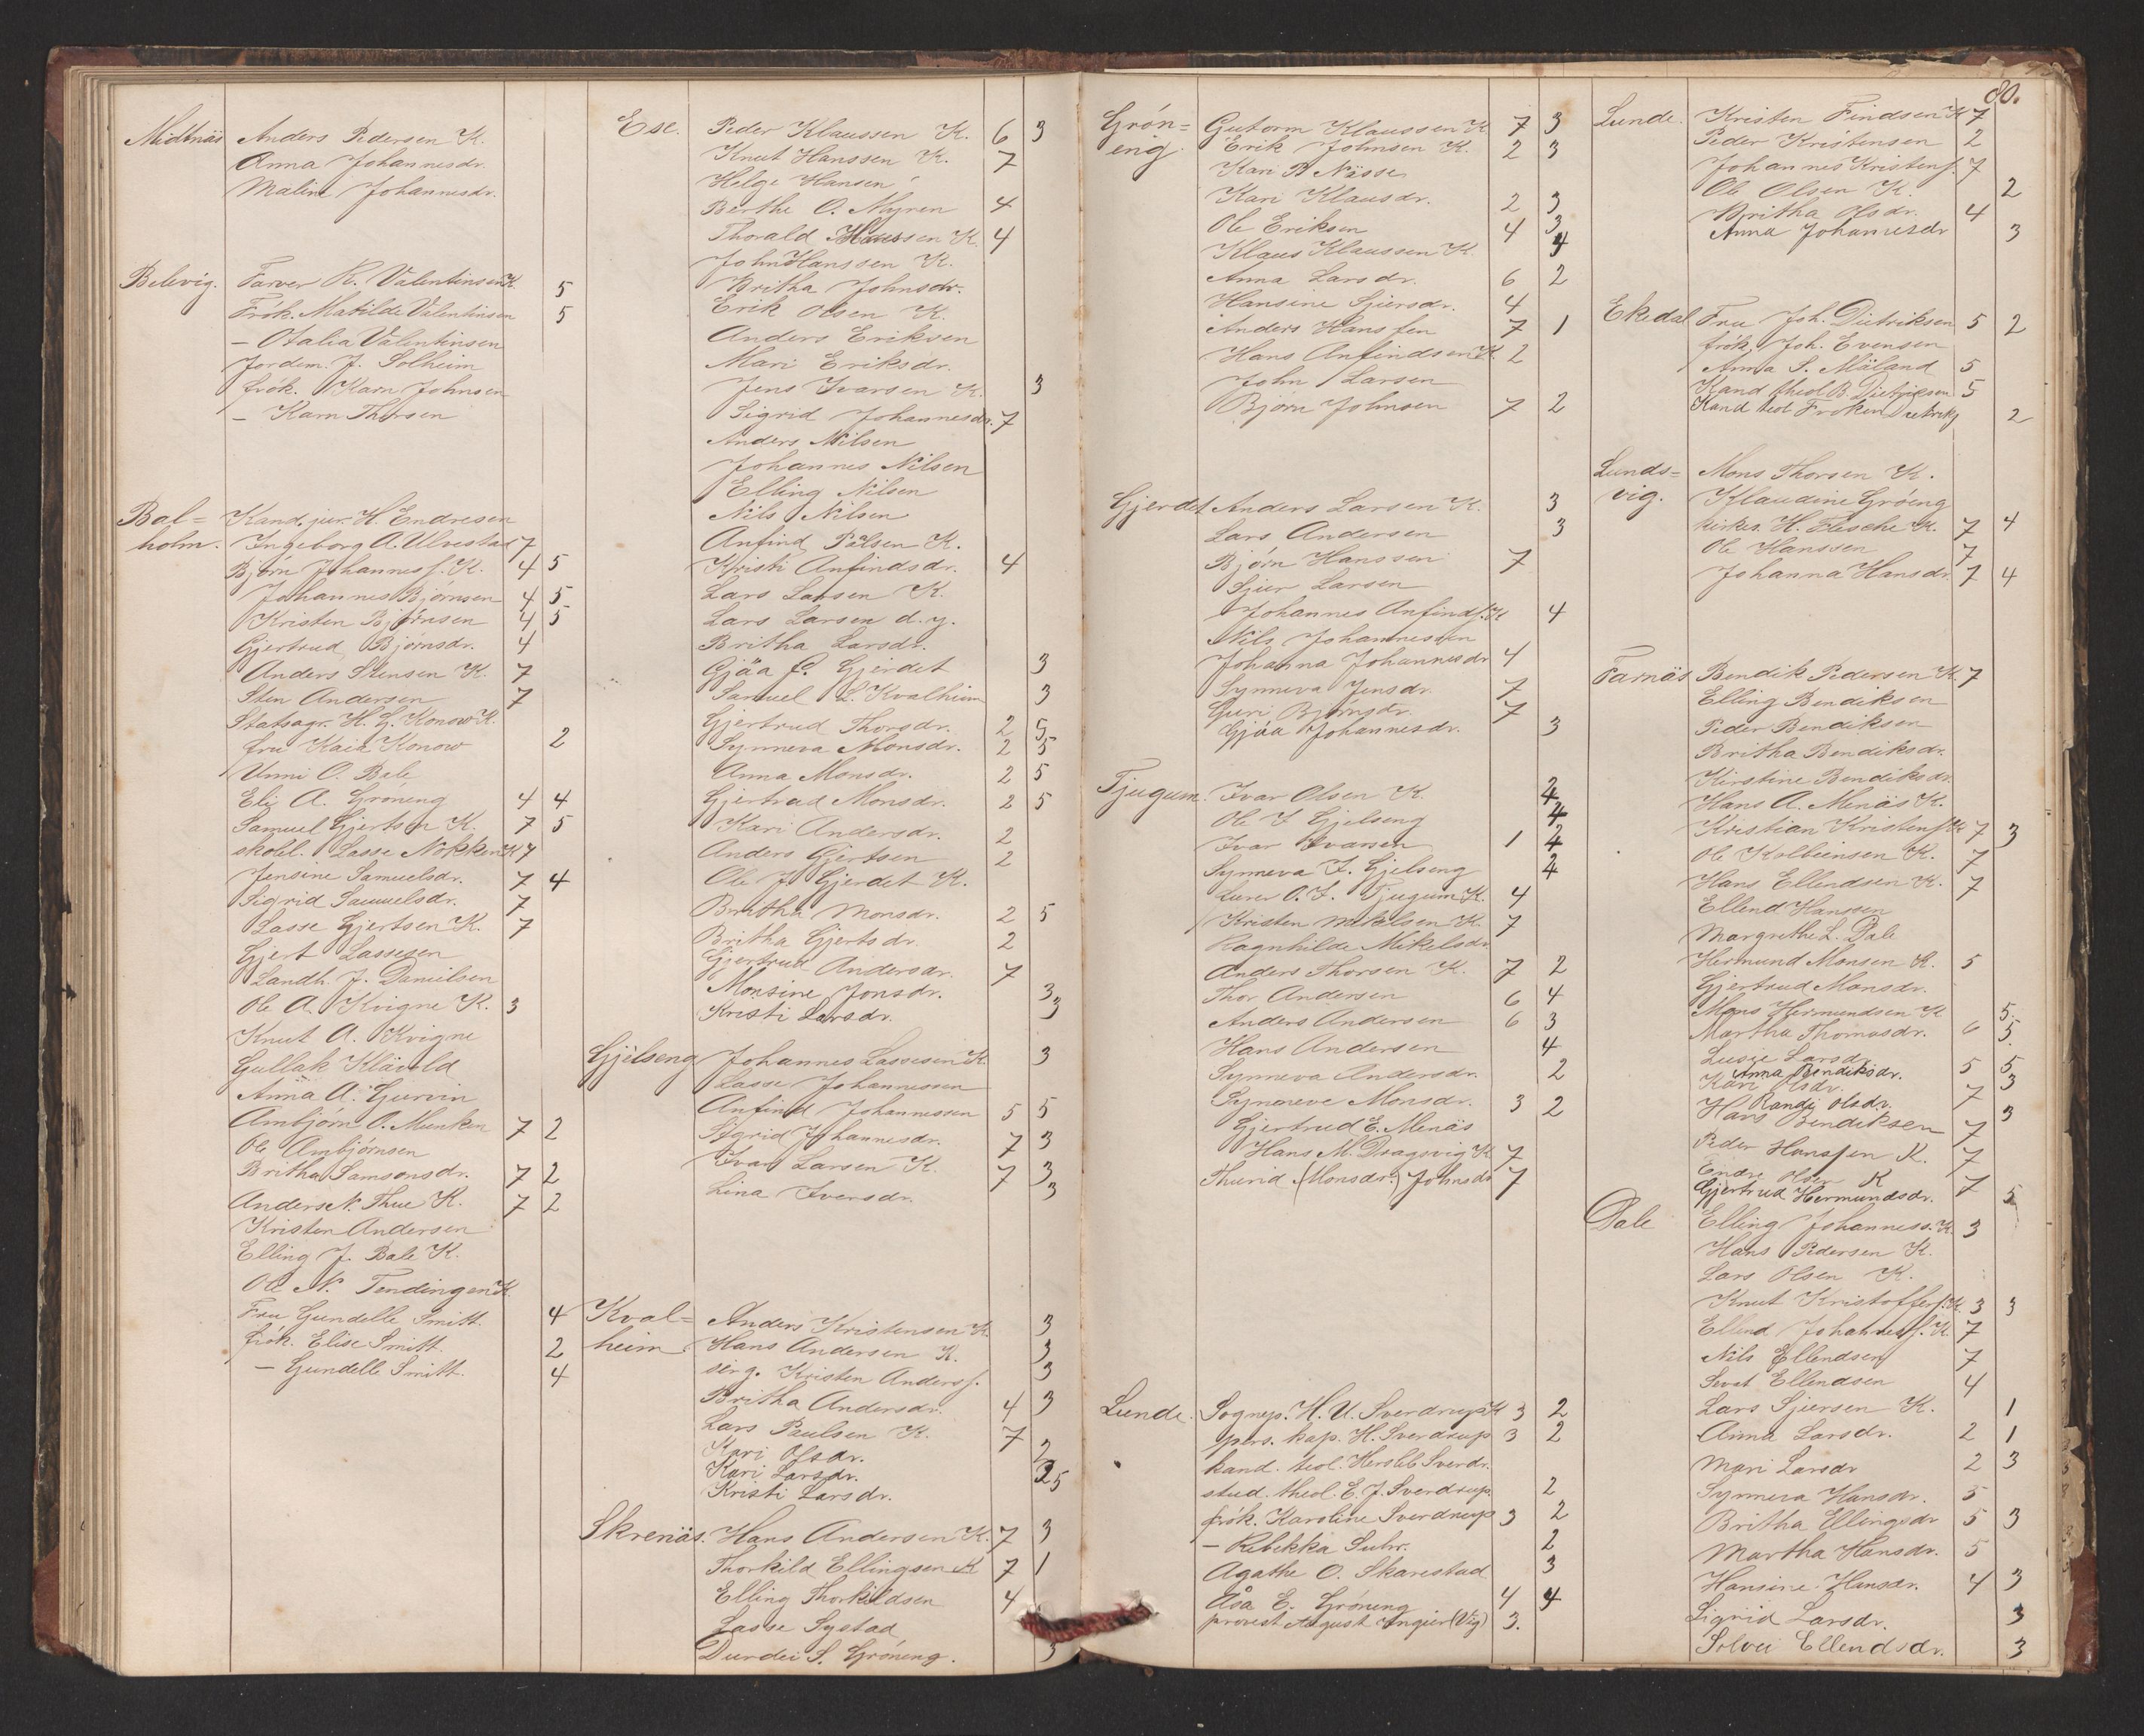 80.
Midtnäs Anders Pedersen K.
Anna Johannesdr.
Maline Johannesdr.
Belevig. Farver R. Valentinsen K. 5
Frók. Matilde Valentinsen 5
— Otalia Valentinsen
Jordem. J. Solheim
frók. Karn Johnsen
— Karn Thorsen
Bal= Kand. jur. H. Endresen
holm. Ingeborg A. Ulvestad 7
Bjørn Johannesf. K. 4 5
Johannes Bjørnsen 4 5
Kristen Bjørnsen 4 5
Gjertrud Bjørnsdr. 4
Anders Stensen K. 7
Sten Andersen 7
Statsagr. H. G. Konow K.
fru Kaia Konow 2
Unni O. Bale
Eli A. Gröneng 4 4
Samuel Gjertsen K. 7 5
skolel. Lasse Nökken K 7
Jensine Samuelsdr. 7 4
Sigrid Samuelsdr. 7
Lasse Gjertsen K. 7
Gjert Lassesen
Landh. J. Danielsen
Ole A. Kvigne K. 3
Knut A. Kvigne
Gullak Klävold
Anna A. Gjurvin
Ambjørn O. Munken 7 2
Ole Ambjørnsen
Britha Samsonsdr. 7 2
Anders N. Thue K. 7 2
Kristen Andersen
Elling J. Bale K.
Ole N. Tendingen K
Fru Gundelle Smitt. 4
frök. Elise Smitt. 2
— Gundelle Smitt. 4
Ese. Peder Klaussen K. 6 3
Knut Hanssen K. 7
Helge Hansen
Berthe O. Myren 4
Thorald Hanssen K. 4
John Hanssen K.
Britha Johnsdr.
Erik Olsen K.
Anders Eriksen
Mari Eriksdr.
Jens Ivarsen K. 3
Sigrid Johannesdr. 7
Anders Nilsen
Johannes Nilsen
Elling Nilsen
Nils Nilsen
Anfind Pålsen K.
Kristi Anfindsdr. 4
Lars Larsen K.
Lars Larsen d. y.
Britha Larsdr.
Gjöa P. Gjerdet 3
Samuel L. Kvalheim 3
Gjertrud Thorsdr. 2 5
Synneva Monsdr. 2 5
Anna Monsdr. 2 5
Gjertrud Monsdr. 2 5
Kari Andersdr. 2
Anders Gjertsen 2
Ole J. Gjerdet K.
Britha Monsdr. 2 5
Britha Gjertsdr. 2
Gjertrud Andersdr. 7
Monsine Jonsdr. 3
Kristi Larsdr. 3
Gjelseng Johannes Lassesen K. 3
Lasse Johannessen
Anfind Johannessen 5 5
Sigrid Johannesdr. 7 3
Ivar Larsen K. 7 3
Lina Iversdr. 3
Kval= Anders Kristensen K 3
heim Hans Andersen K. 3
serg. Kristen Andersf. 3
Britha Andersdr. 4 3
Lars Paulsen K. 7
Kari Olsdr. 2
Kari Larsdr.
Kristi Larsdr. 5
Skrenäs. Hans Andersen K. 7 3
Thorkild Ellingsen K 7 1
Elling Thorkildsen 4
Lasse Systad
Durdei S. Gröneng. 3
Grón= Gutorm Klaussen K. 7 3
eng. Erik Johnsen K. 2 3
Kari P. Nässe
Kari Klausdr. 2 3
Ole Eriksen 4 3
Klaus Klaussen K. 4
Anna Larsdr. 6 2
Hansine Sjursdr. 4
Anders Hansfen 7 1
Hans Anfindsen K 2
John Larsen
Bjørn Johnsen 7 2
Gjerdet Anders Larsen K. 3
Lars Andersen 3
Bjørn Hanssen 7
Sjur Larsen
Johannes Anfindf. K 4
Nils Johannessen
Johanna Johannesdr 4
Synneva Jensdr. 7
Guri Bjørnsdr. 7
Gjöa Johannesdr. 3
Tjugum. Ivar Olsen K. 4
Ole I Gjelseng 4
Ivar Ivarsen 1 4
Synneva I. Gjelseng 4
Lærer O. I. Tjugum K. 4
Kristen Mikelsen K. 7
Ragnhilde Mikelsdr.
Anders Thorsen K. 7 2
Thor Andersen 6 4
Anders Andersen 6 3
Hans Andersen 4
Synneva Andersdr. 2
Synneve Monsdr. 3 2
Gjertrud E. Menäs
Hans M. Dragsvig K 7
Thurid (Monsdr.) Johnsdr 7
Lunde. Sognep. H. U. Sverdrup K 3 2
pers. kap. H. Sverdrup 3 2
kand. teol. Hersleb Sverdr.
stud. theol. E. J. Sverdrup 2
frök. Karoline Sverdrup 3 2
— Rebekka Suhr. 2
Agathe O. Skarestad 3
Åsa E. Gröneng 4 4
provest August Angier (Vig) 3.
Lunde. Kristen Findsen K 7
Peder Kristensen 2
Johannes Kristenf. 7
Ole Olsen K. 2
Britha Olsdr. 4
Anna Johannesdr 3
Ekedal Fru Joh. Dietriksen 5 2
frök. Joh. Evensen
Anna S. Mäland 5
Kand. theol B. Dietriksen 5
Kand teol Fröken Dietriks 2
Lunds= Mons Thorsen K.
vig. Klaudine Gröeng
kirkes. H. Flesche K. 7 4
Ole Hanssen 7
Johanna Hansdr. 7 4
Farnäs Bendik Pedersen K. 7
Elling Bendiksen
Peder Bendiksen
Britha Bendiksdr.
Kirstine Bendiksdr.
Hans A. Menäs K.
Kristian Kristenf. K 7 3
Ole Kolbeinsen K. 7
Hans Ellendsen K. 7
Ellend Hanssen
Margrethe L. Dale
Hermund Monsen K. 5
Gjertrud Monsdr.
Mons Hermundsen K 5
Martha Thomasdr. 6 5
Lusie Larsdr. 5 5
Anna Bendiksdr. 3
Kari Olsdr. 7
Randi Olsdr. 3
Hans Bendiksen 7
Peder Hansfen K. 7
Endre Olsen K 7
Gjertrud Hermundsdr. 5
Dale Elling Johanness. K. 3
Hans Pedersen K.
Lars Olsen K.
Knut Kristofferf. K. 3 3
Ellend Johannesf. K. 7
Nils Ellendsen 7
Sevat Ellendsen 4
Lars Sjursen K. 1
Anna Larsdr. 2 1
Mari Larsdr 2 3
Synneva Hansdr. 5
Britha Ellingsdr 5 3
Martha Hansdr. 5
Hansine Hansdr. 4 3
Sigrid Larsdr. 3
Solvei Ellendsdr. 3